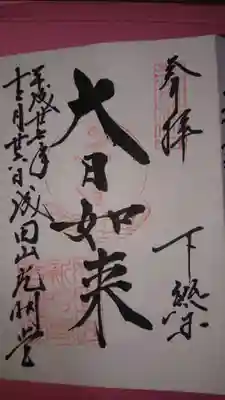 奉拝
下総
大日如来
平成廿六年
十二月廿八日成田山光明堂